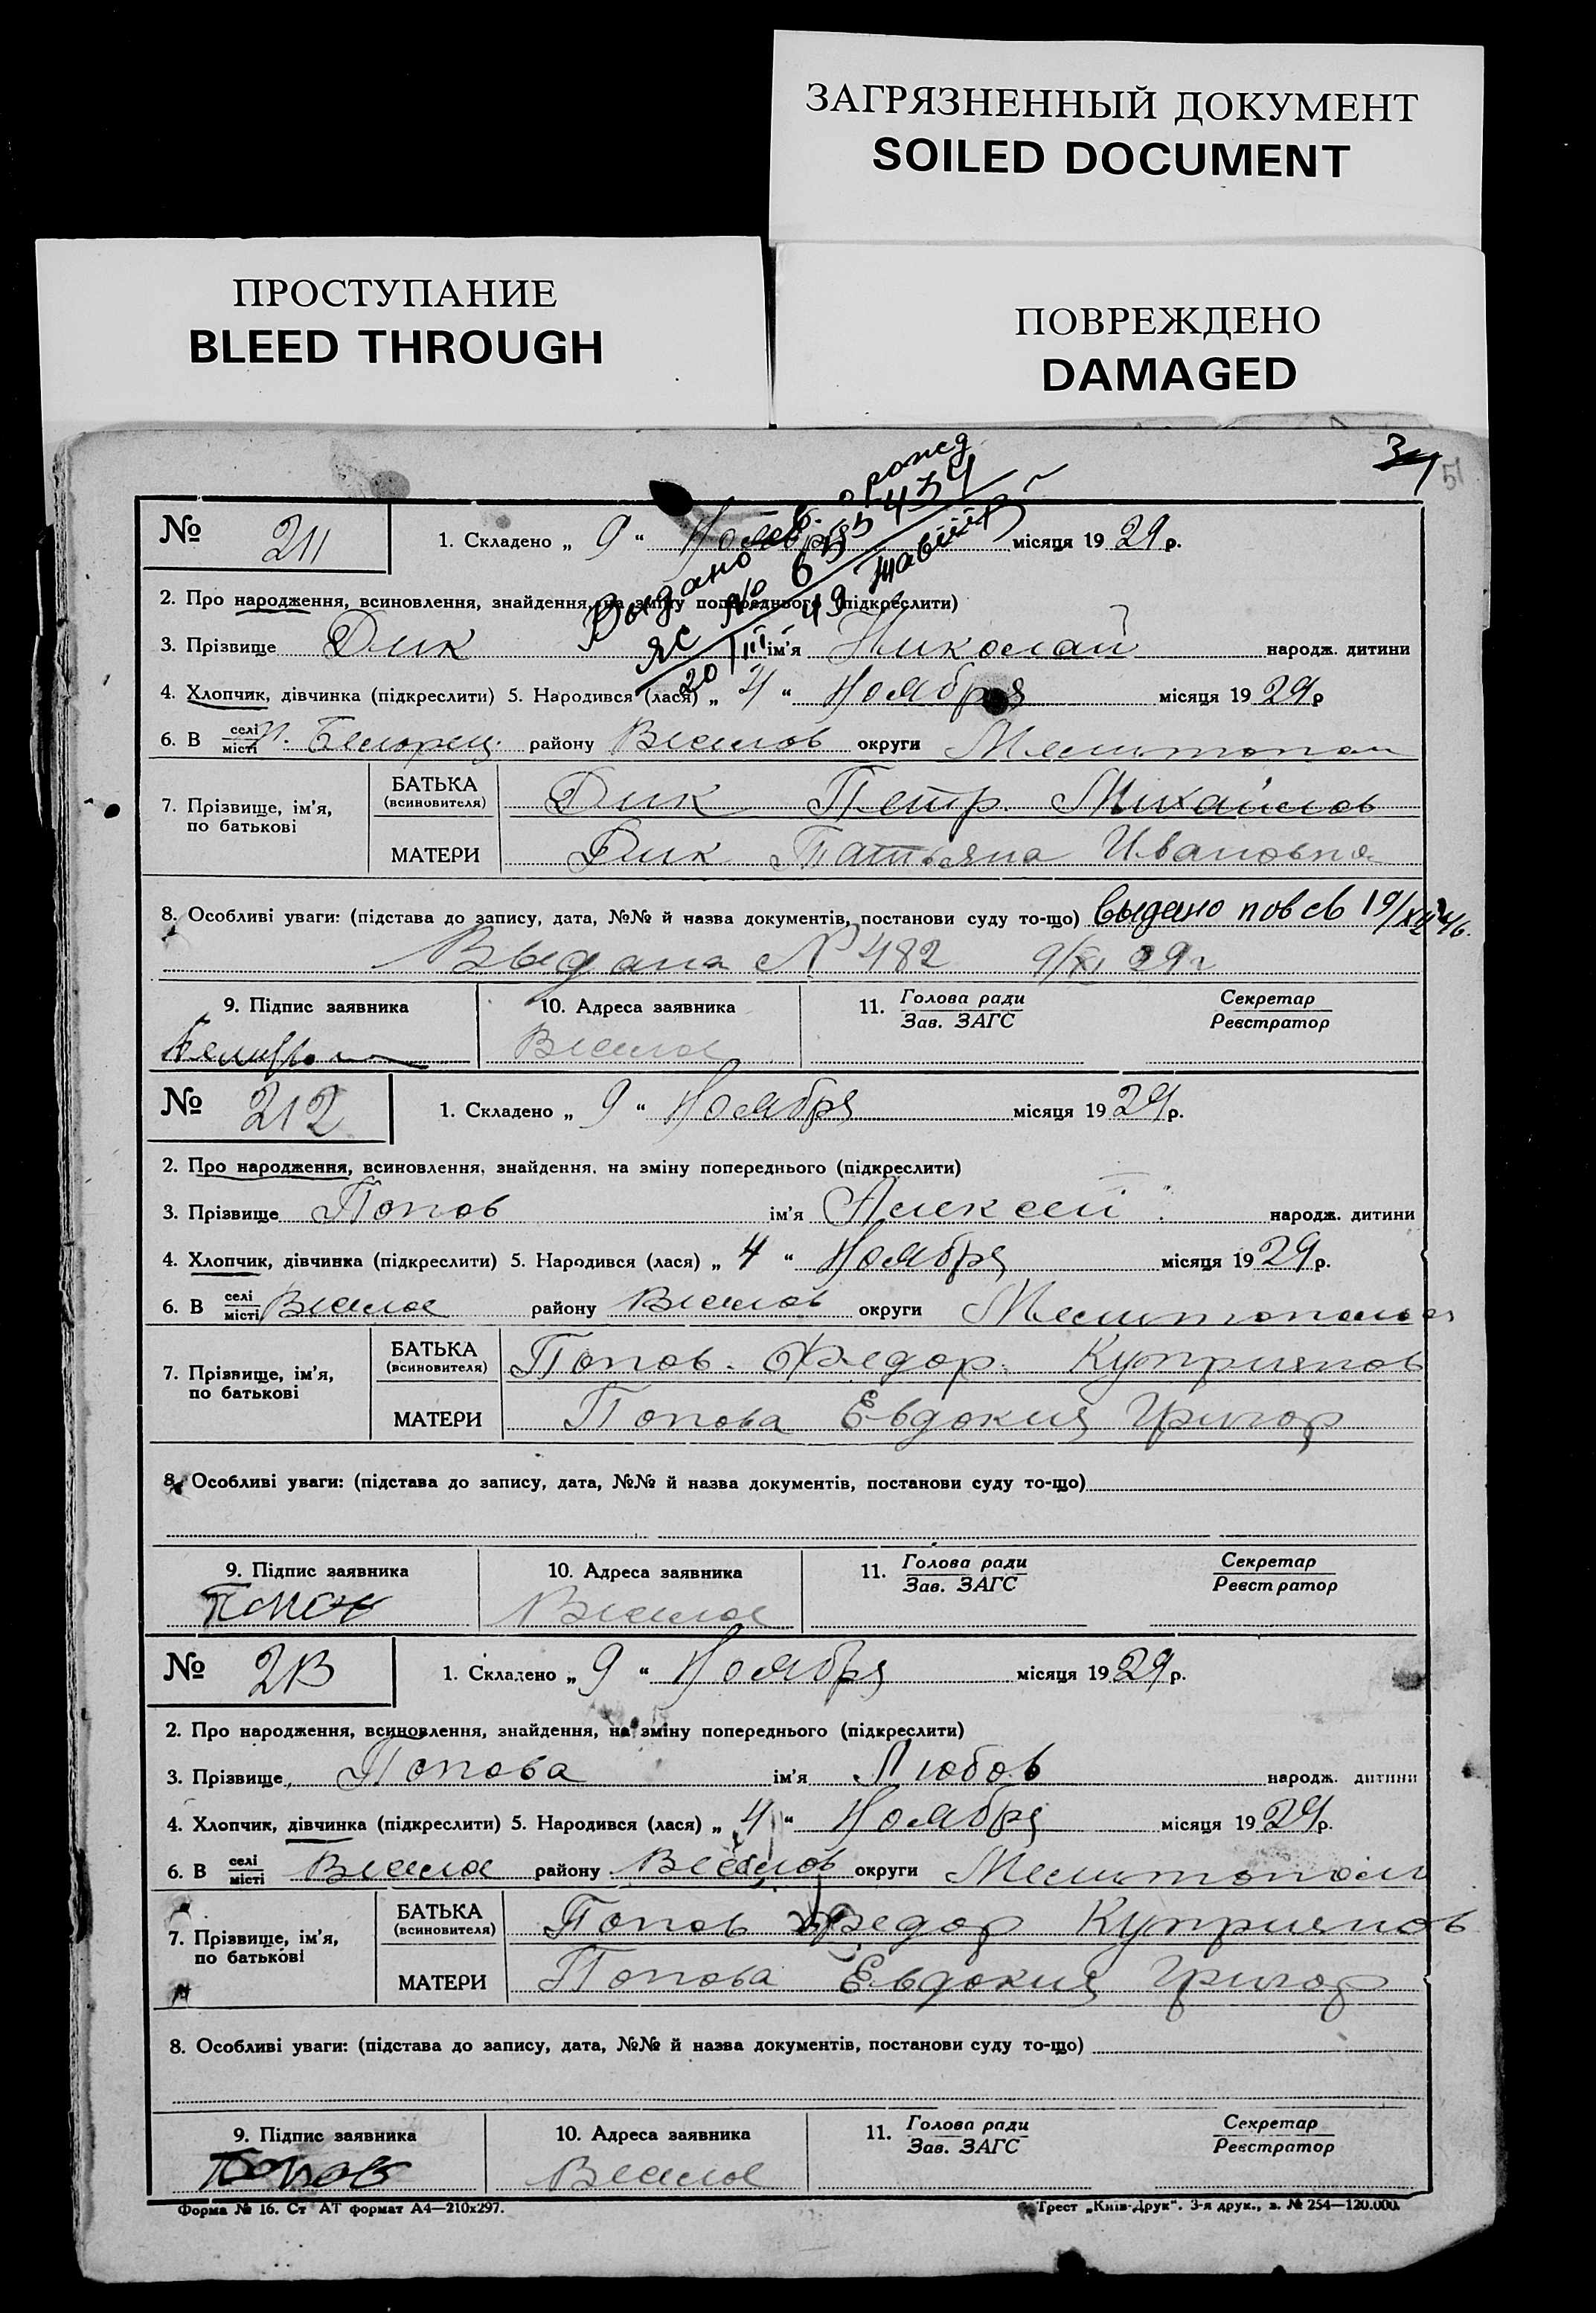 ЗАГРЯЗНЕННЫЙ ДОКУМЕНТ
SOILED DOCUMENT
ПРОСТУПАНИЕ
BLEED THROUGH
ПОВРЕЖДЕНО
DAMAGED
34 51
№ 211 1. Складено „ 9 “ Ноября місяця 1929 р.
Выдано
ЯС №
2. Про народження, всиновлення, знайдення, на зміну попереднього (підкреслити)
3. Прізвище Дик ім'я Николай народж. дитини
4. Хлопчик, дівчинка (підкреслити) 5. Народився (лася) „ 4 “ Ноября місяця 1929 р
6. В селі місті району Веселов округи Мелитопол
7. Прізвище, ім'я, по батькові БАТЬКА (всиновителя) Дик Петр. Михайлов
МАТЕРИ Дик Татьяна Ивановна
8. Особливі уваги: (підстава до запису, дата, №№ й назва документів, постанови суду то-що) Выдано повсв 19/XII 46.
Выдана № 482 9/XI 29 г
9. Підпис заявника 10. Адреса заявника 11. Голова ради Зав. ЗАГС Секретар Реєстратор
Веселое
№ 212 1. Складено „ 9 “ Ноября місяця 1929 р.
2. Про народження, всиновлення, знайдення, на зміну попереднього (підкреслити)
3. Прізвище Попов ім'я Алексей народж. дитини
4. Хлопчик, дівчинка (підкреслити) 5. Народився (лася) „ 4 “ Ноября місяця 1929 р.
6. В селі місті Веселое району Веселов округи Мелитополь
7. Прізвище, ім'я, по батькові БАТЬКА (всиновителя) Попов. Федор. Куприянов
МАТЕРИ Попова Евдокия Григор
8. Особливі уваги: (підстава до запису, дата, №№ й назва документів, постанови суду то-що)
9. Підпис заявника 10. Адреса заявника 11. Голова ради Зав. ЗАГС Секретар Реєстратор
Попов Веселое
№ 213 1. Складено „ 9 “ Ноября місяця 1929 р.
2. Про народження, всиновлення, знайдення, на зміну попереднього (підкреслити)
3. Прізвище Попова ім'я Любов народж. дитини
4. Хлопчик, дівчинка (підкреслити) 5. Народився (лася) „ 4 “ Ноября місяця 1929 р.
6. В селі місті Веселое району Веселов округи Мелитополь
7. Прізвище, ім'я, по батькові БАТЬКА (всиновителя) Попов Федор Куприянов
МАТЕРИ Попова Евдокия Григор
8. Особливі уваги: (підстава до запису, дата, №№ й назва документів, постанови суду то-що)
9. Підпис заявника 10. Адреса заявника 11. Голова ради Зав. ЗАГС Секретар Реєстратор
Попов Веселое
Форма № 16. Ст АТ формат А4—210х297. Трест „Київ-Друк“. 3-я друк., з. № 254—120.000.